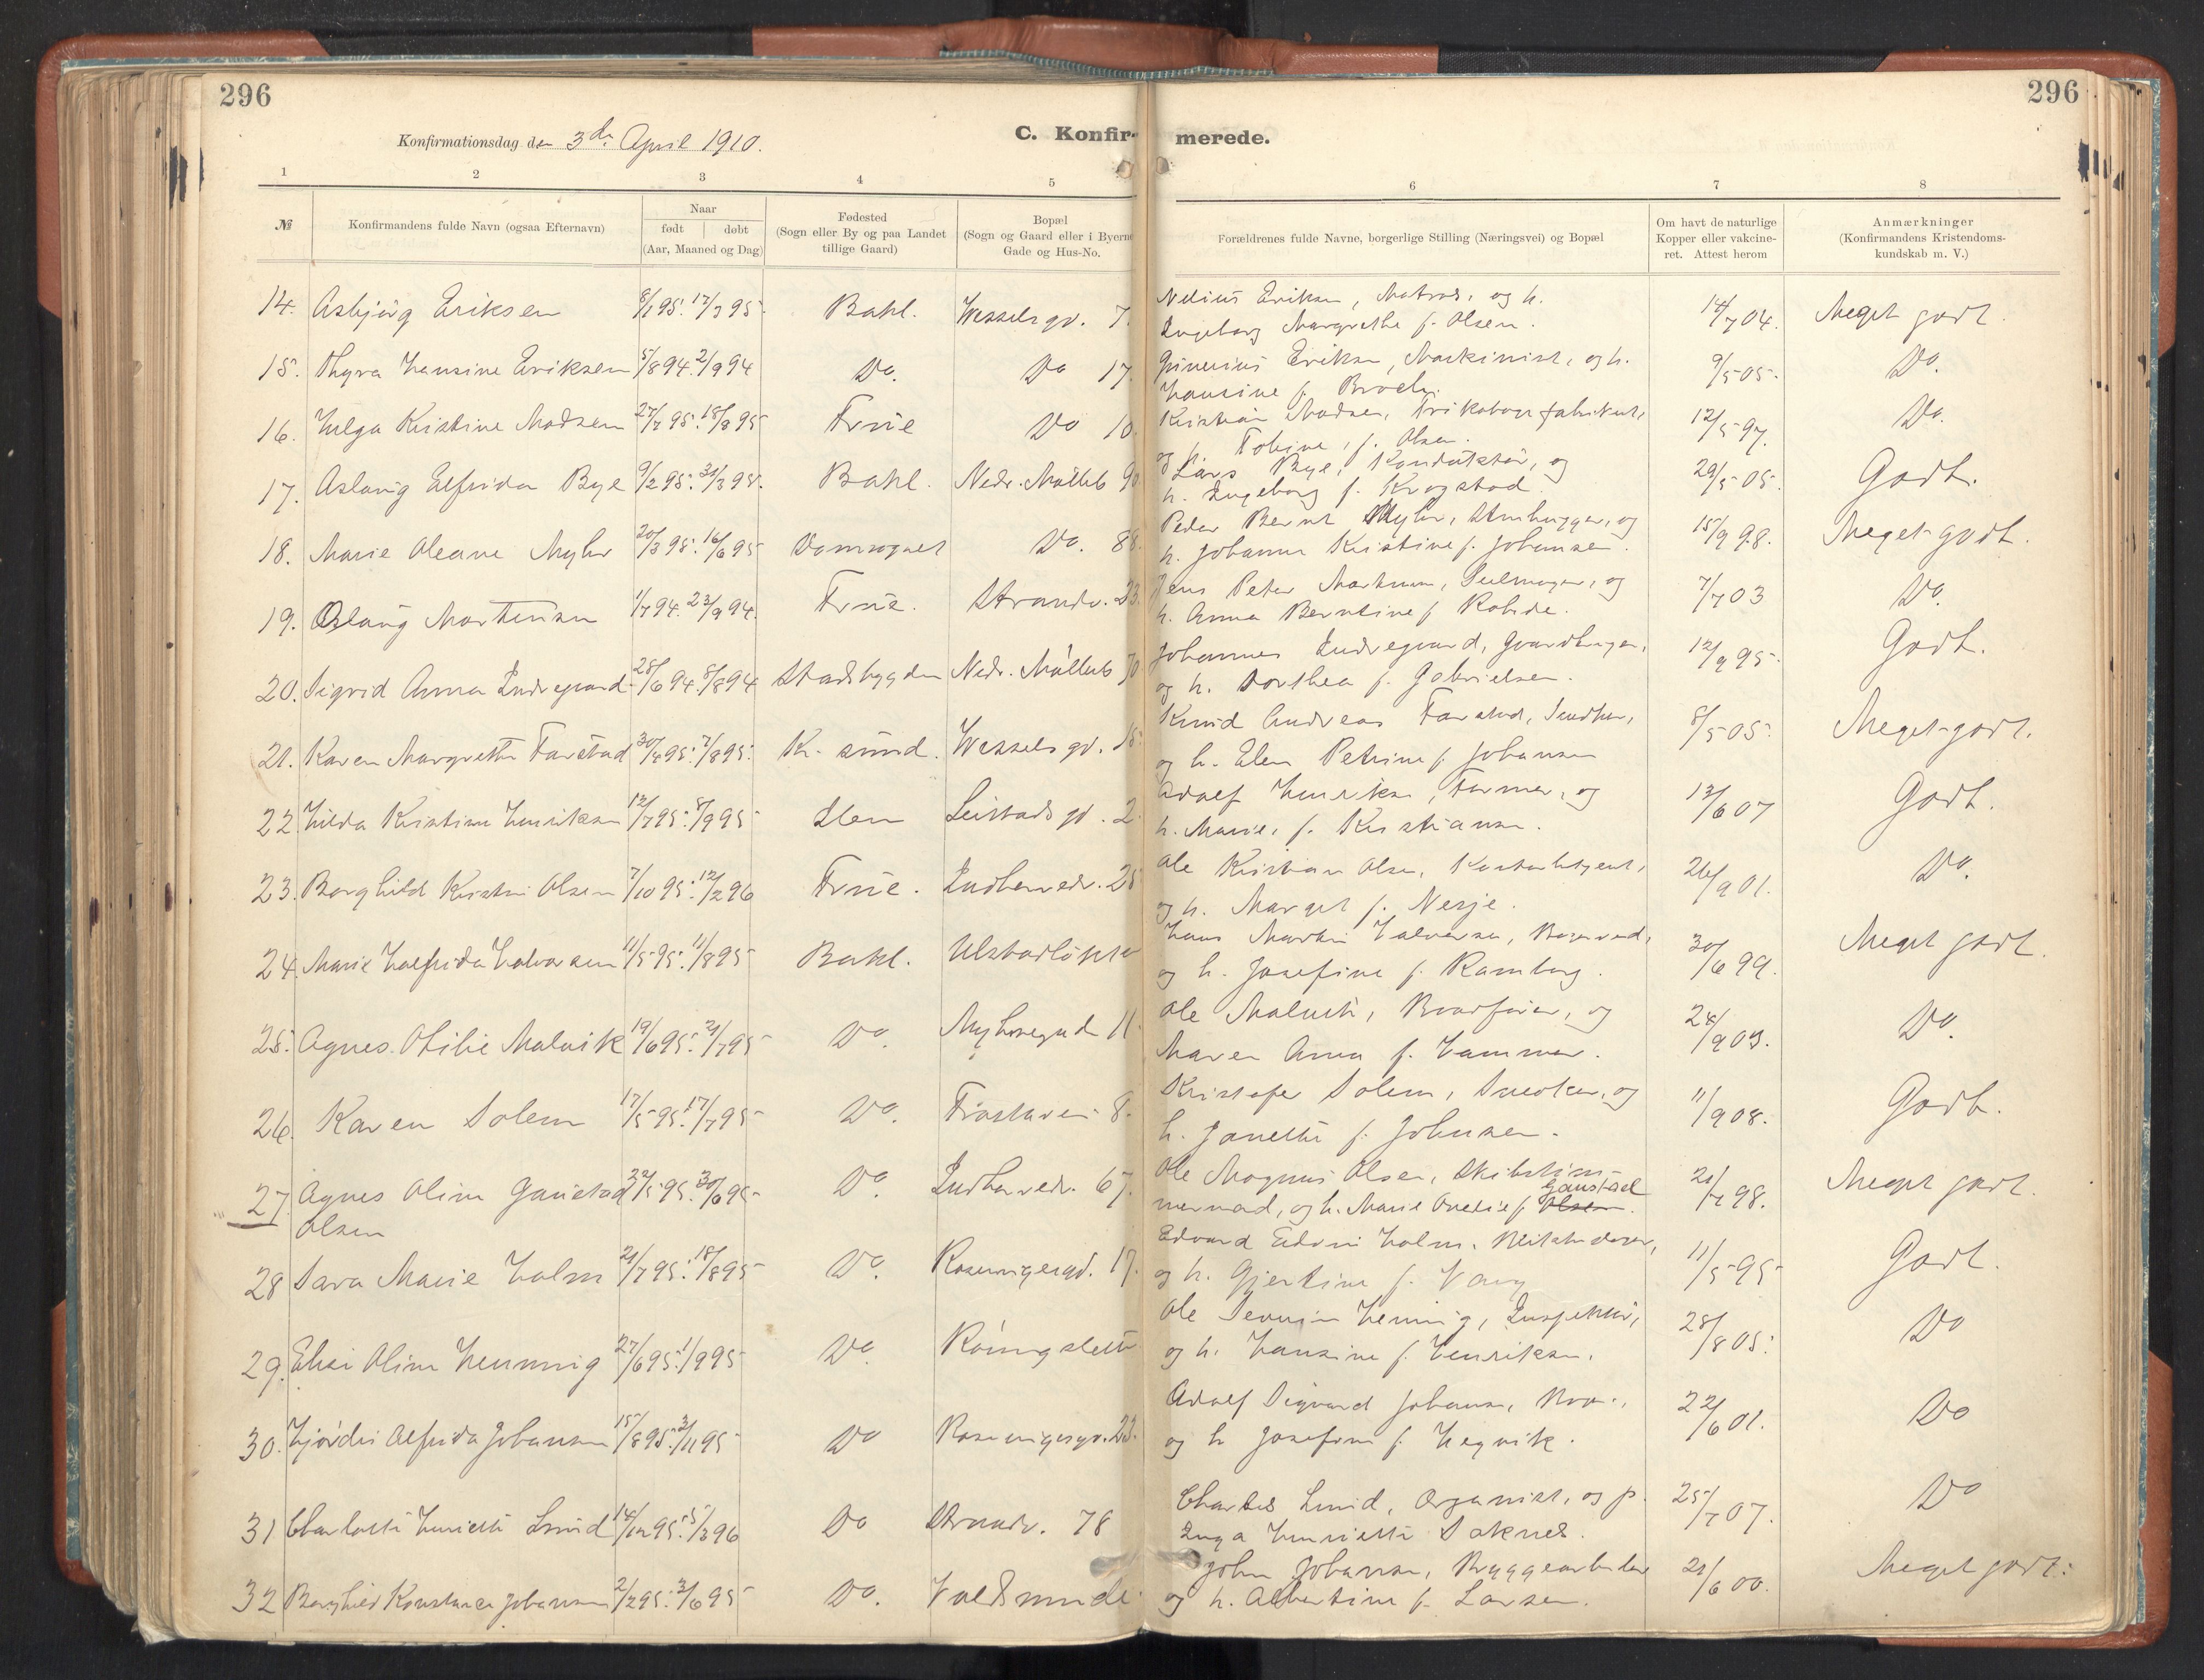 296
296
Konfirmationsdag den 3die April 1910.
C. Konfir-
merede.
1 2 3 4 5 6 7 8
№
Konfirmandens fulde Navn (ogsaa Efternavn)
Naar
født | døbt
(Aar, Maaned og Dag)
Fødested
(Sogn eller By og paa Landet
tillige Gaard)
Bopæl
(Sogn og Gaard eller i Byerne
Gade og Hus-No.
Forældrenes fulde Navne, borgerlige Stilling (Næringsvei) og Bopæl
Om havt de naturlige
Kopper eller vakcine-
ret. Attest herom
Anmærkninger
(Konfirmandens Kristendoms-
kundskab m. V.)
14. Asbjörg Eriksen 8/1 95. 17/3 95. Bakl. Wesselsgd. 7. Nelius Eriksen, Matros, og h. 14/7 04. Meget godt.
Ingeborg Margrethe f. Olsen.
15. Thyra Hansine Eriksen 5/8 94. 2/9 94 Do. Do 17. Grinerius Eriksen, Maskinist, og h. 9/5 05. Do.
Hansine f. Broch.
16. Helga Kristine Madsen 27/7 95. 18/8 95 Frue Do 10. Kristian Madsen, Trikotagefabrikant, 12/5 97. Do.
og h. Tobine, f. Olsen.
17. Aslaug Elfrida Bye 9/2 95. 31/3 95. Bakl. Nedr. Mölleb 90 Lars Bye, Konduktör, og 29/5 05. Godt.
h. Ingeborg f. Krogstad.
18. Marie Oleane Myhr 20/3 95. 16/6 95 Domsognet Do. 88 Peder Bernt Myhr, Stenhugger, og 15/9 98. Meget godt.
h. Johanna Kristine f. Johansen.
19. Aslaug Martinsen 1/7 94. 23/9 94. Frue. Strandv. 23. Jens Peter Martinsen, Seilmager, og 7/7 03 Do.
h. Anna Berntine f.
20. Sigrid Anna Indregaard 28/6 94. 5/8 94 Stadsbygden Nedr. Mölleb 70 Johannes Indregaard, Gaardbruger, 12/9 95. Godt.
og h. Dorthea f. Gabrielsen.
21. Karen Margrethe Farstad 30/4 95. 7/8 95. Kr. sund. Wesselsgd. 15 Knud Andreas Farstad, Snedker, 8/5 05. Meget godt.
og h. Elen Petrine f. Johansen
22 Hilda Kristine Henriksen 12/7 95. 8/9 95 Ilen Leistadsgd. 2. Adolf Henriksen, Former, og 13/6 07 Godt.
h. Marie, f. Kristiansen.
23. Borghild Kristine Olsen 7/10 95. 12/2 96 Frue. Indherredv. 25 Ole Kristian Olsen, Kontorbetjent, 26/9 01. Do.
og h. Marget f. Nesje.
24. Marie Halfrida Halvorsen 11/5 95. 11/8 95 Bakl. Ulstadlökke Hans Martin Halvorsen, 30/6 99. Meget godt.
og h. Josefine f. Ramberg.
25. Agnes Otilie Malvik 19/6 95. 21/7 95 Do. Myhresgade 11. Ole Malvik, Brodfører, og 24/9 03. Do.
Maren Anna f. Hammer.
26. Karen Solem 17/5 95. 17/7 95 Do. Frostavei 8. Kristofer Solem, Snedker, og 11/9 08. Godt.
h. Janette f. Johnsen.
27. Agnes Oline Gaustad 22/5 95. 30/6 95 Do. Indherredv. 67. Ole Magnus Olsen, Skibstöm- 21/7 98. Meget godt.
Olsen
mermand, og h. Marie Orelie f. Olsen. Gaustad
28 Sara Marie Holm 21/7 95. 18/8 95 Do. Rosenvingesgd. 17. Edvard Edvin Holm, Blikkenslager, 11/5 95 Godt.
og h. Gjertine f. Vang
29. Elise Oline Henning 27/6 95. 1/9 95 Do. Röningslett Ole Severin Henning, Inspektör, 28/8 05. Do
og h. Hansine f. Henriksen.
30. Hjördis Alfrida Johansen 15/8 95. 3/11 95 Do Rosenvingesgd. 23. Adolf Sigvard Johansen, 22/6 01. Do
og h Josefine f. Hegvik.
31 Charlotte Henriette Lund 14/12 95. 15/3 96 Do Strandv. 78 Charles Lund, Organist, og p. 25/7 07. Do
Inga Henriette Saknes.
32 Borghild Konstance Johansen 2/2 95. 3/6 95 Do. Voldsminde John Johansen, Bryggearbeider 21/6 00. Meget godt.
og h. Albertine f. Larsen.